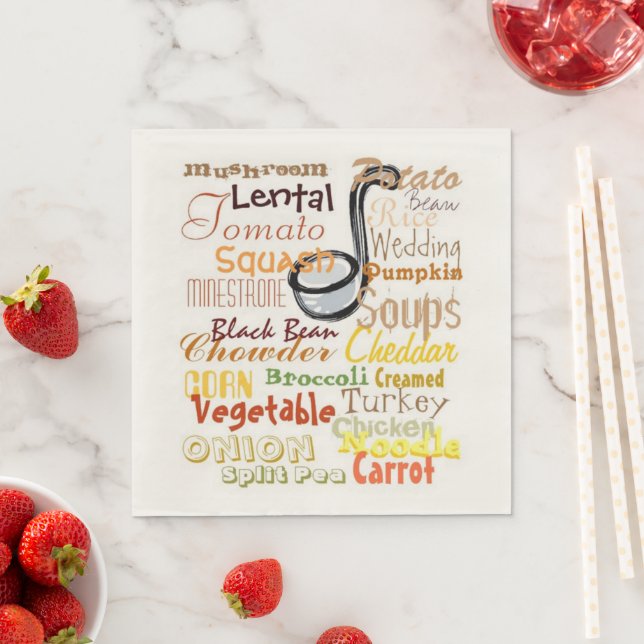 mushroom Potato
Lental Bean
Tomato Rice
Squash Wedding
MINESTRONE Pumpkin
Soups
Black Bean
Chowder Cheddar
CORN Broccoli Creamed
Vegetable Turkey
Chicken
ONION Noodle
Split Pea Carrot